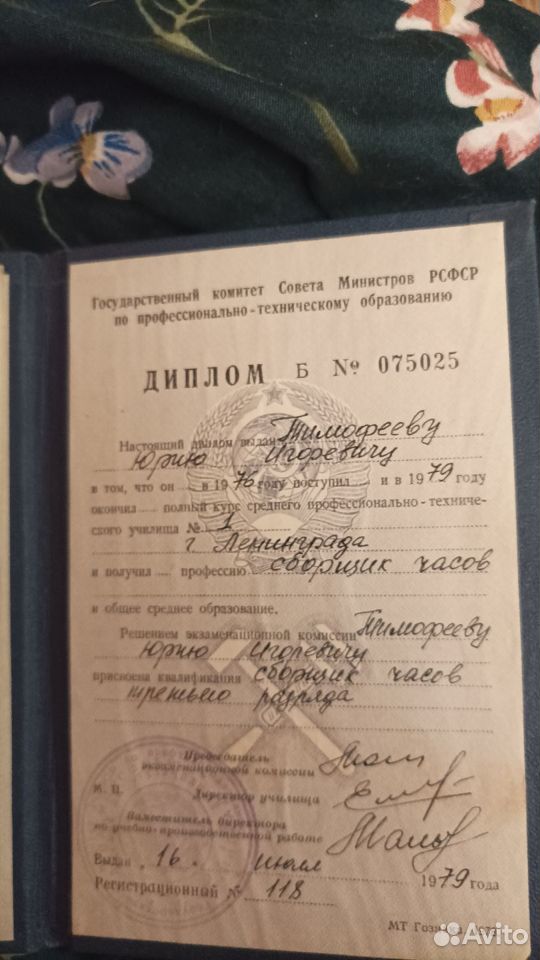 Государственный комитет Совета Министров РСФСР
по профессионально-техническому образованию
ДИПЛОМ Б № 075025
Настоящий диплом выдан Тимофееву
Юрию Игоревичу
в том, что он .... в 1976 году поступил .... и в 1979 году
окончил .... полный курс среднего профессионально-техниче-
ского училища № 1
г. Ленинграда
и получил .... профессию сборщик часов
и общее среднее образование.
Решением экзаменационной комиссии Тимофееву
Юрию Игоревичу
присвоена квалификация сборщик часов
третьего разряда
Председатель
экзаменационной комиссии
М. П. Директор училища
Заместитель директора
по учебно-производственной работе
Выдан "16" июля 1979 года
Регистрационный № 118
МТ Гознака
Avito